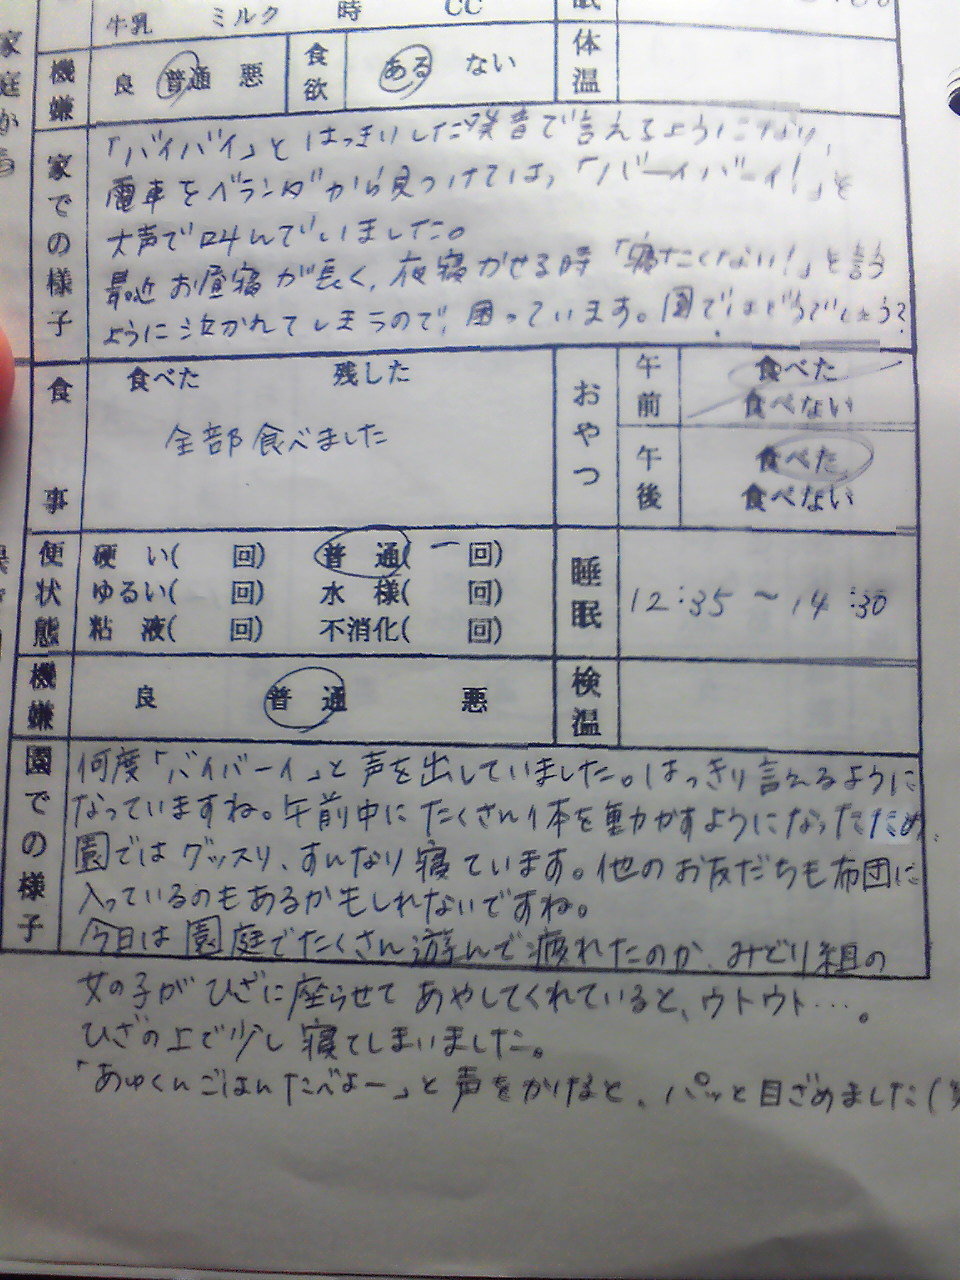 牛乳 ミルク 時 CC 眠
家庭か
機嫌 良 普通 悪 食欲 ある ない 体温
家での様子
「バイバイ」と はっきりした発音で言えるようになり、
電車をベランダから見つけては、「バーイバーイ!」と
大声で叫んでいました。
最近 お昼寝が長く、夜寝かせる時「寝たくない!」と言う
ように泣かれてしまうので、困っています。園ではどうでしょう?
食事 食べた 残した
全部食べました
おやつ 午前 食べた 食べない
午後 食べた 食べない
便状態 硬い( 回) 普通( 一 回)
ゆるい( 回) 水様( 回)
粘液( 回) 不消化( 回)
睡眠 12:35 ~ 14:30
機嫌 良 普通 悪 検温
園での様子
何度「バイバーイ」と声を出していました。はっきり言えるように
なっていますね。午前中にたくさん体を動かすようになったため、
園ではグッスリ、すんなり寝ています。他のお友だちも布団に
入っているのもあるかもしれないですね。
今日は園庭でたくさん遊んで疲れたのか、みどり組の
女の子がひざに座らせてあやしてくれていると、ウトウト…。
ひざの上で少し寝てしまいました。
「あゆくんごはんたべよー」と声をかけると、パッと目ざめました(